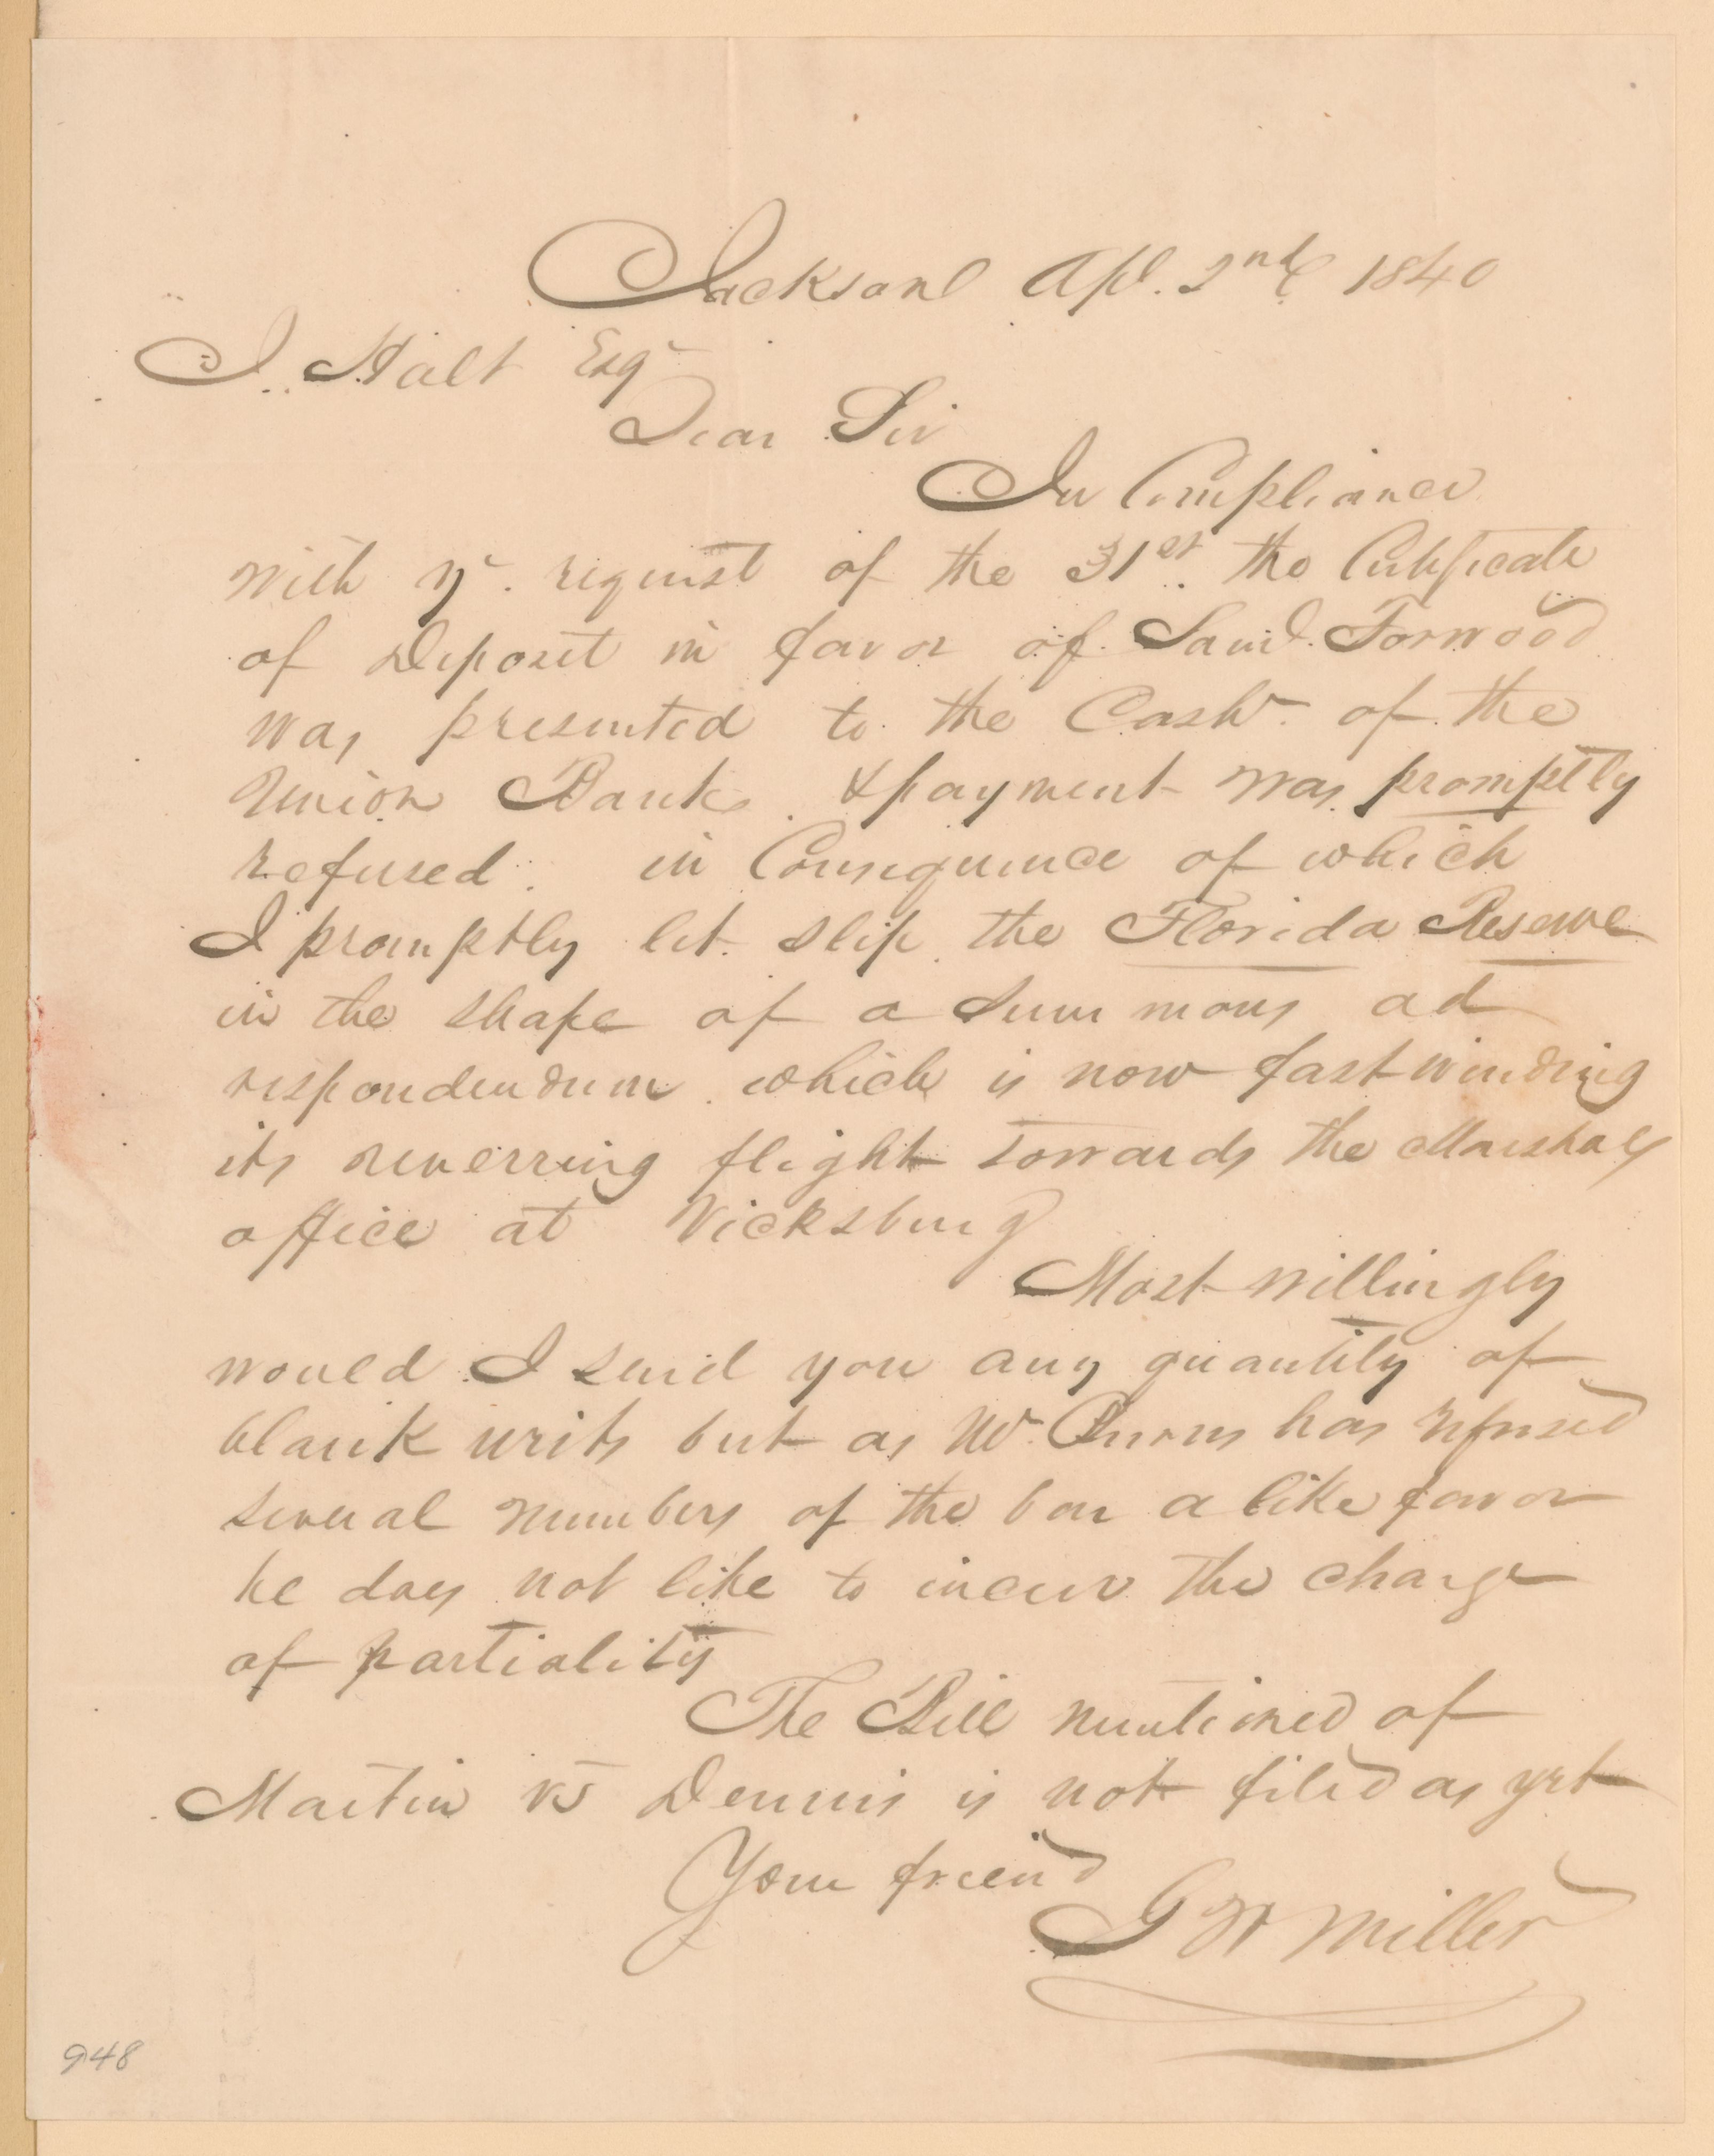 Jackson Apl. 2nd 1840
J. Holt Esqr
Dear Sir
In Compliance
with yr. request of the 31st. the Certificate
of Deposit in favor of Saml. Forwood
was presented to the Cashr. of the
Union Bank. & payment was promptly
refused. in Consequence of which
I promptly let slip the Florida Reserve
in the shape of a Summons ad
respondendum which is now fast winding
its unerring flight towards the Marshals
office at Vicksburg
Most willingly
would I send you any quantity of
blank writs but as Mr. has refused
several members of the bar a like favor
he does not like to incur the charge
of partiality
The Bill mentioned of
Martin vs Dennis is not filed as yet
Your friend
G W Miller
948